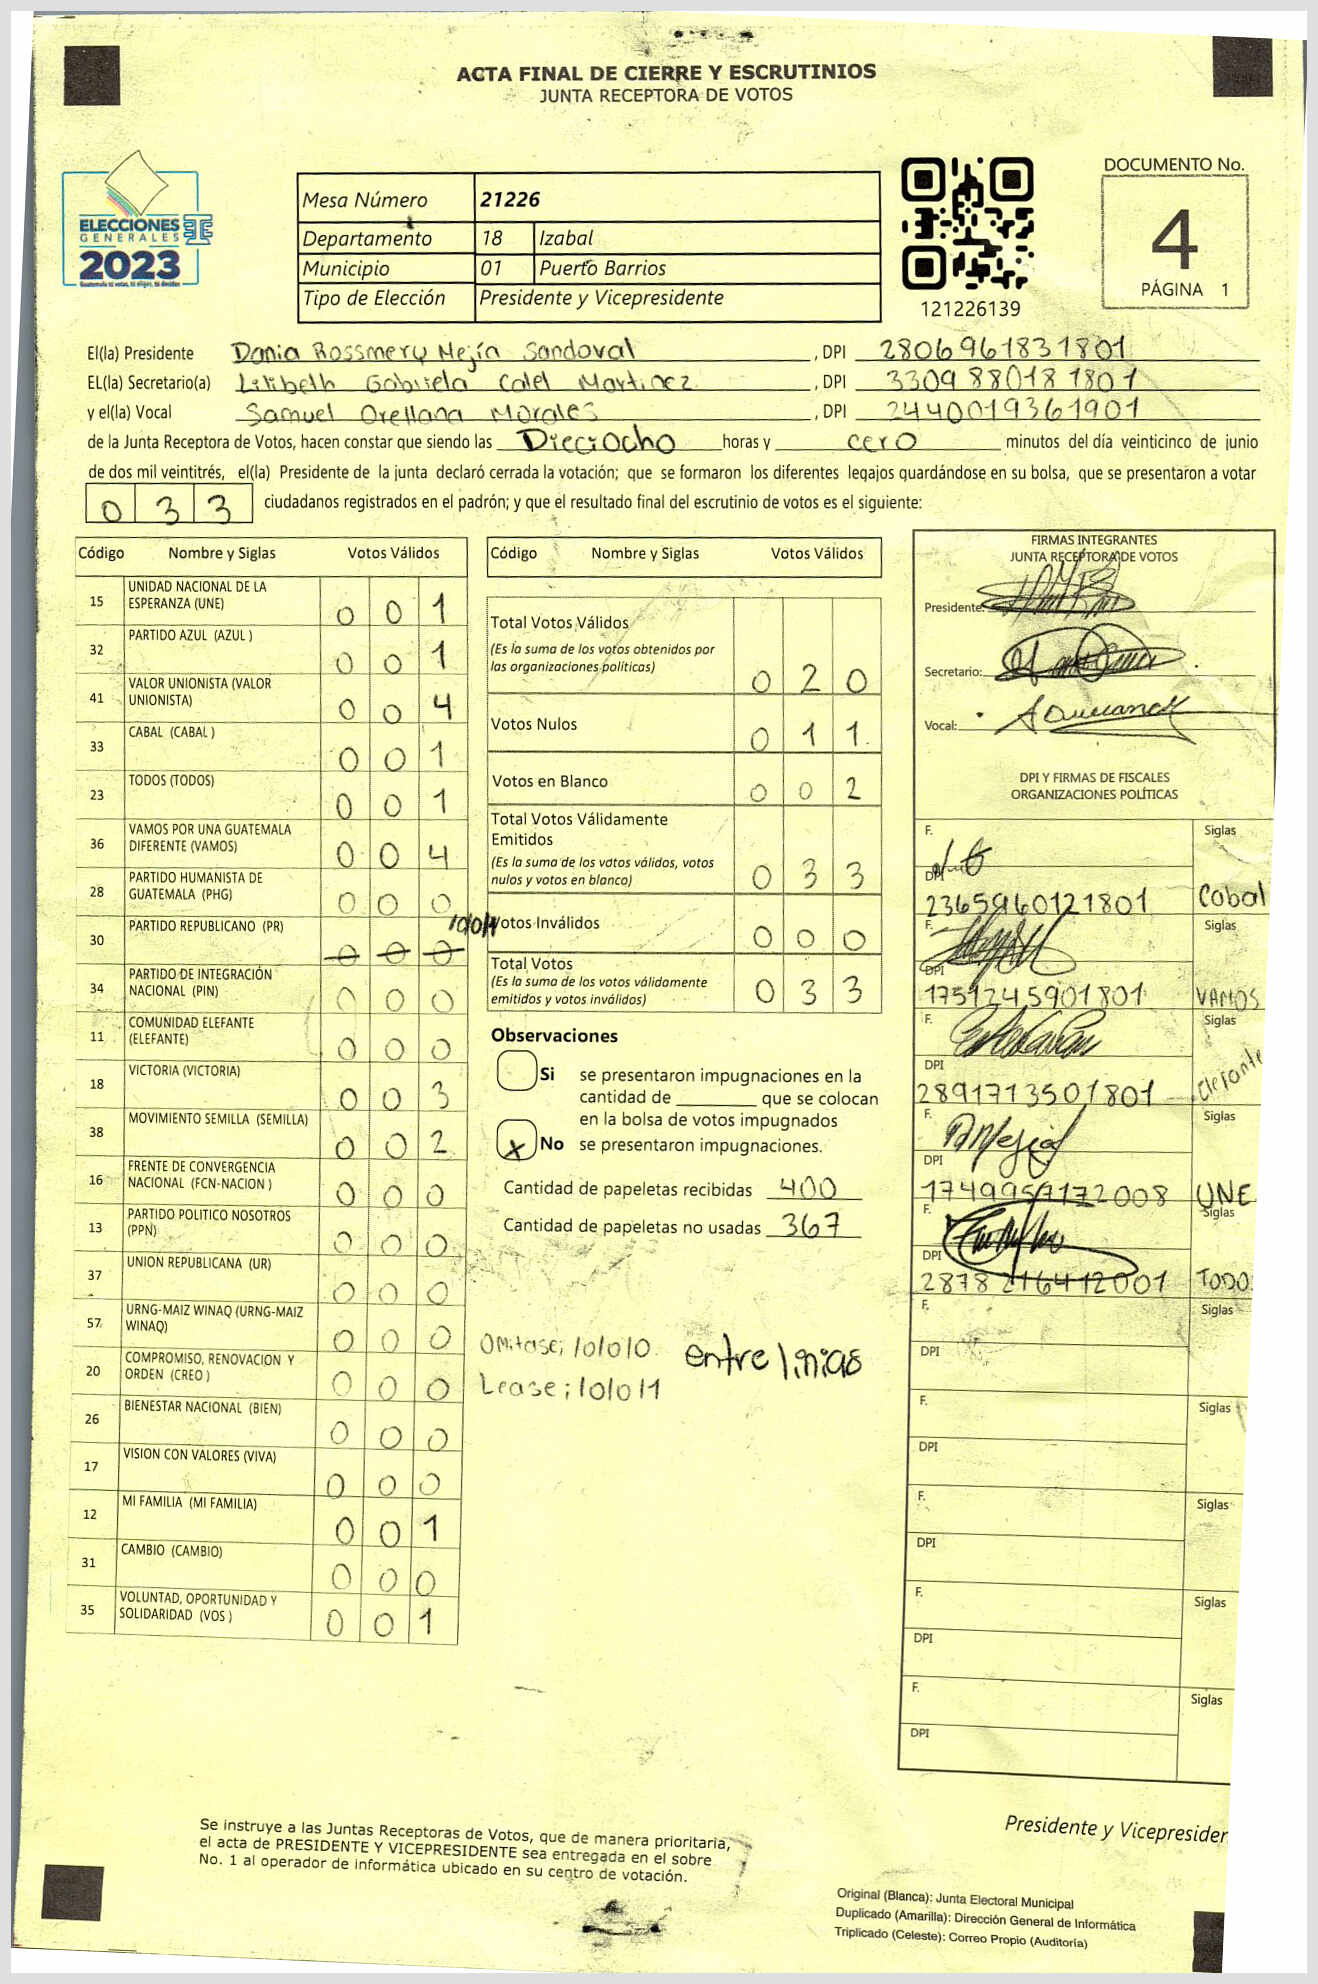 ACTA FINAL DE CIERRE Y ESCRUTINIOS
JUNTA RECEPTORA DE VOTOS
ELECCIONES
GENERALES
2023
Guatemala tú votas, tú eliges, tú decides
Mesa Número 21226
Departamento 18 Izabal
Municipio 01 Puerto Barrios
Tipo de Elección Presidente y Vicepresidente
121226139
DOCUMENTO No.
4
PÁGINA 1
El(la) Presidente Dania Rossmery Mejía Sandoval, DPI 2806961831801
EL(la) Secretario(a) Lilibeth Gabriela Calel Martinez, DPI 3309880181801
y el(la) Vocal Samuel Orellana Morales, DPI 2440019361901
de la Junta Receptora de Votos, hacen constar que siendo las Dieciocho horas y cero minutos del día veinticinco de junio
de dos mil veintitrés, el(la) Presidente de la junta declaró cerrada la votación; que se formaron los diferentes legajos quardándose en su bolsa, que se presentaron a votar
0 3 3 ciudadanos registrados en el padrón; y que el resultado final del escrutinio de votos es el siguiente:
Código Nombre y Siglas Votos Válidos
15 UNIDAD NACIONAL DE LA ESPERANZA (UNE) 0 0 1
32 PARTIDO AZUL (AZUL ) 0 0 1
41 VALOR UNIONISTA (VALOR UNIONISTA) 0 0 4
33 CABAL (CABAL ) 0 0 1
23 TODOS (TODOS) 0 0 1
36 VAMOS POR UNA GUATEMALA DIFERENTE (VAMOS) 0 0 4
28 PARTIDO HUMANISTA DE GUATEMALA (PHG) 0 0 0
30 PARTIDO REPUBLICANO (PR) 0 0 0 /0/0/1
34 PARTIDO DE INTEGRACIÓN NACIONAL (PIN) 0 0 0
11 COMUNIDAD ELEFANTE (ELEFANTE) 0 0 0
18 VICTORIA (VICTORIA) 0 0 3
38 MOVIMIENTO SEMILLA (SEMILLA) 0 0 2
16 FRENTE DE CONVERGENCIA NACIONAL (FCN-NACION ) 0 0 0
13 PARTIDO POLITICO NOSOTROS (PPN) 0 0 0
37 UNION REPUBLICANA (UR) 0 0 0
57 URNG-MAIZ WINAQ (URNG-MAIZ WINAQ) 0 0 0
20 COMPROMISO, RENOVACION Y ORDEN (CREO ) 0 0 0
26 BIENESTAR NACIONAL (BIEN) 0 0 0
17 VISION CON VALORES (VIVA) 0 0 0
12 MI FAMILIA (MI FAMILIA) 0 0 1
31 CAMBIO (CAMBIO) 0 0 0
35 VOLUNTAD, OPORTUNIDAD Y SOLIDARIDAD (VOS ) 0 0 1
Código Nombre y Siglas Votos Válidos
Total Votos Válidos
(Es la suma de los votos obtenidos por
las organizaciones políticas) 0 2 0
Votos Nulos 0 1 1
Votos en Blanco 0 0 2
Total Votos Válidamente
Emitidos
(Es la suma de los votos válidos, votos
nulos y votos en blanco) 0 3 3
Votos Inválidos 0 0 0
Total Votos
(Es la suma de los votos válidamente
emitidos y votos inválidos) 0 3 3
Observaciones
Si se presentaron impugnaciones en la
cantidad de ________ que se colocan
en la bolsa de votos impugnados
x No se presentaron impugnaciones.
Cantidad de papeletas recibidas 400
Cantidad de papeletas no usadas 367
Omitase; /0/0/0 entre linias
Lease; /0/0/1
FIRMAS INTEGRANTES
JUNTA RECEPTORA DE VOTOS
Presidente:
Secretario:
Vocal:
DPI Y FIRMAS DE FISCALES
ORGANIZACIONES POLÍTICAS
F. Siglas
DPI
2365960121801 Cabal
F. Siglas
DPI
1751245901801 VAMOS
F. Siglas
DPI
2891713501801 elefante
F. Siglas
DPI
1749957172008 UNE
F. Siglas
DPI
2878216412001 TODO
F. Siglas
DPI
F. Siglas
DPI
F. Siglas
DPI
F. Siglas
DPI
F. Siglas
DPI
Se instruye a las Juntas Receptoras de Votos, que de manera prioritaria,
el acta de PRESIDENTE Y VICEPRESIDENTE sea entregada en el sobre
No. 1 al operador de informática ubicado en su centro de votación.
Presidente y Vicepresider
Original (Blanca): Junta Electoral Municipal
Duplicado (Amarilla): Dirección General de Informática
Triplicado (Celeste): Correo Propio (Auditoría)